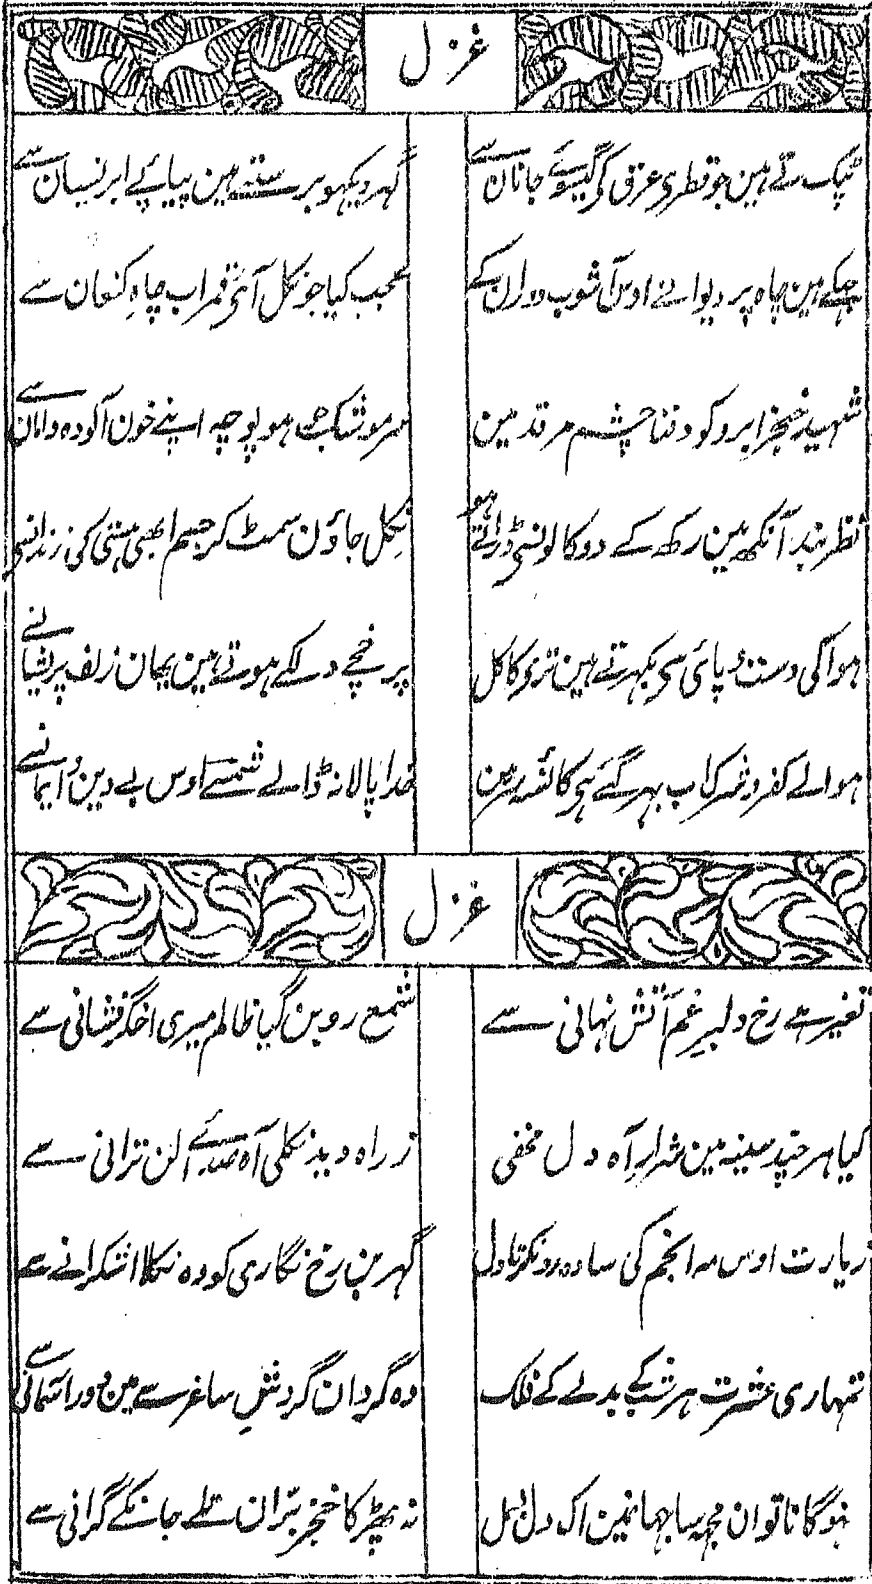 غزل
ٹپک تے ہین جو قطری عرق کے گیسوئے جانان سے
گہر دیکہو برستے ہین پیاپے ابر نیسان سے
جہکے ہین چاہ پر دیوانے اوس آشوب دوران کے
عجب کیا جو نکل آئے قمر اب چاہِ کنعان سے
شہید خنجر ابرو کو دفنا چشم مرقد مین
سر مو شک جو ہو پوچہ اپنے خون آلودہ دامان سے
نظر بند آنکھ مین رکھ کے دوکالونسی ڈراتے ہو
نکل جاؤن سمٹ کر جسم ابھی ہستی کی زندانسی
ہوا کی دست و پای سی بکہرتے ہین تری کاکل
پرخچے دلکے ہوتے ہین یہان زلف پریشانسے
ہوالے کفر و شرک اب بہر گئے ہی کاسۂ سرمین
خدا پالا نہ ڈالے شمسے اوس بے دین و ایمانسے
غزل
تغیر ہے رخ دلبر غم آتش نہانی سے
شمع رو بن گیا ظالم میری اخگر فشانی سے
کیا ہر چند سینہ مین شرارِ آہ دل مخفی
ز راہ دید نکلی آہ صدائے لن ترانی سے
زیارت اوس مہ انجم کی سادہ رو نکرتا دل
گہر بن رخ نگاری کو وہ نکلا اشکرانے سے
تمہاری عشرت ہر شب کے بدلے کے فلک
وہ گردان گردشِ ساغر سے مین دور آسمانی سے
ہوگا ناتوان مجہہ سا جہانمین اک دل بسمل
نہ پھڑکا خنجر برّان تلے جانکے گرانی سے